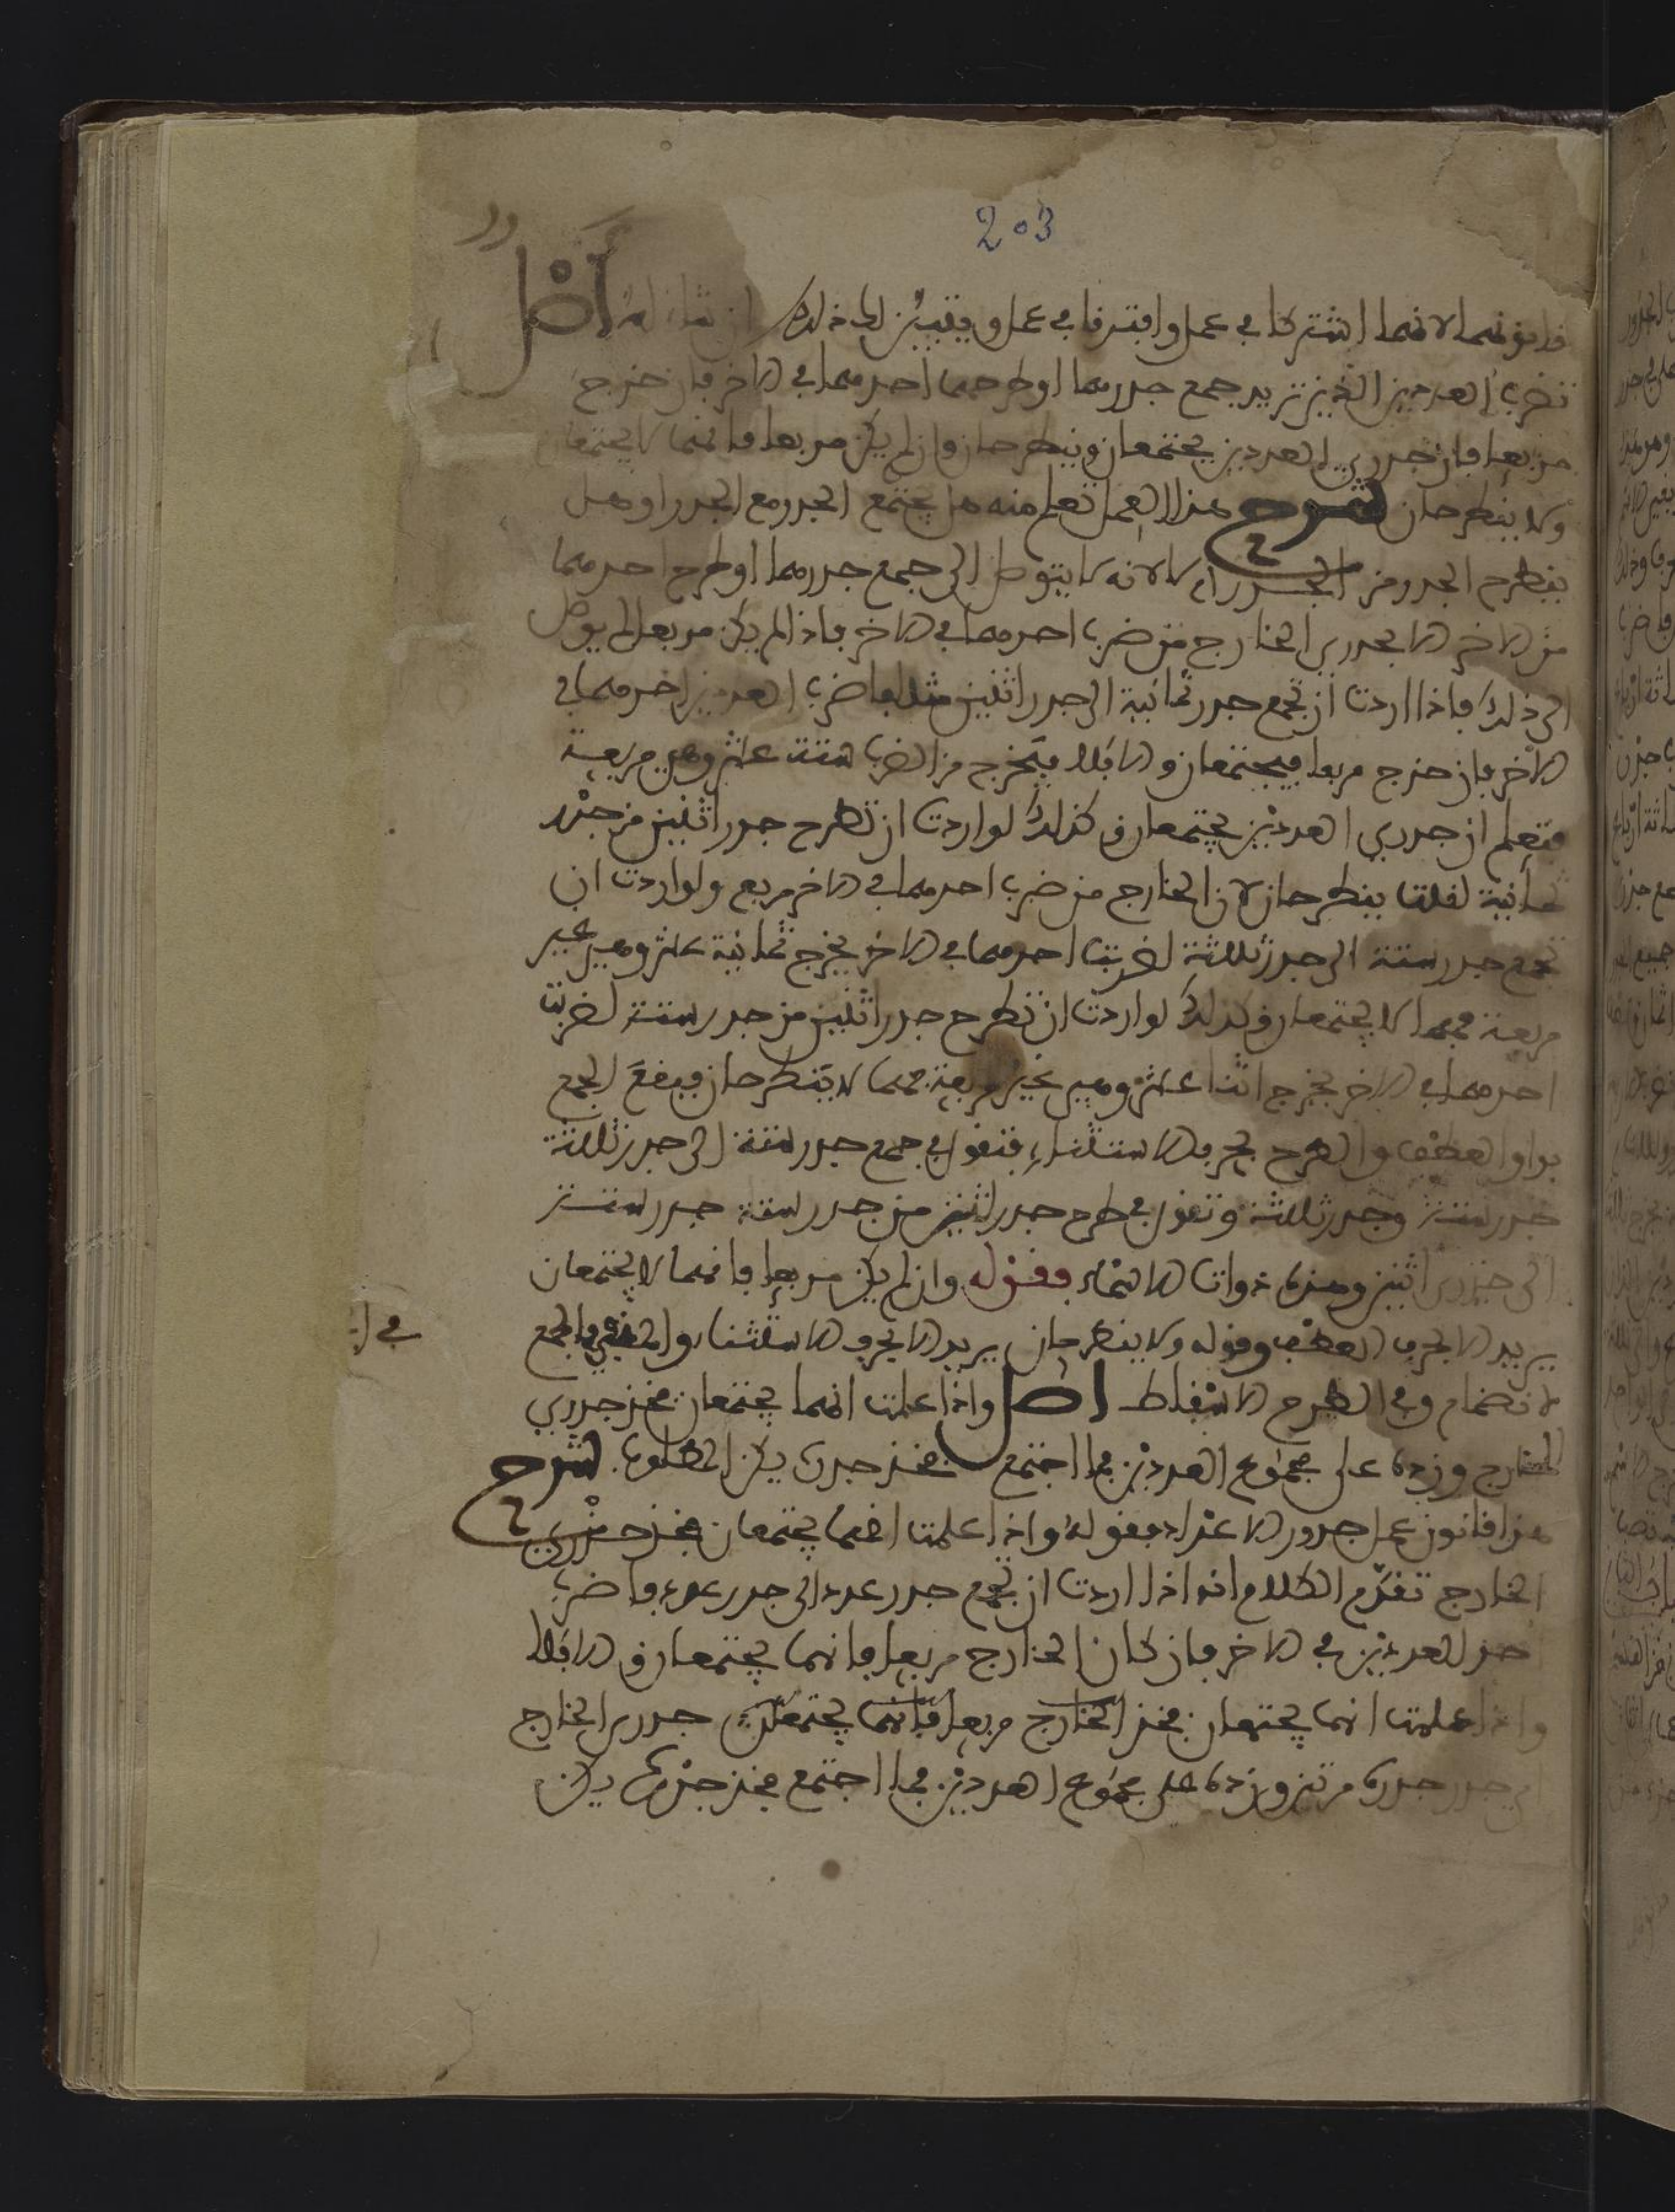 203
قانونهما لانهما اشتركا في عمل وافترقا في عمل ويتبين لك ذلك ان شاء الله أصل
تضرب العددين الذين تريد جمع جدريهما او طرحهما احدهما في الاخر فان خرج
مربعا فان جدري العددين يجتمعان وينطرحان وان لم يكن مربعا فانهما لا يجتمعان
ولا ينطرحان شرح هذا العمل تعلم منه هل يجتمع الجدر مع الجدر او هل
ينطرح الجدر من الجدر ام لا لانه لا يتوصل الى جمع جدريهما او طرح احدهما
من الاخر الا بجدري الخارج من ضرب احدهما في الاخر فاذا لم يكن مربعا لم يوصل
الى ذلك فاذا اردت ان تجمع جدر ثمانية الى جدر اثنين مثلا فاضرب العددين احدهما في
الاخر فان خرج مربعا فيجتمعان والا فلا فيخرج من الضرب ستة عشر وهي مربعة
فتعلم ان جدري العددين يجتمعان وكذلك لو اردت ان تطرح جدر اثنين من جدر
ثمانية لقلت ينطرحان لان الخارج من ضرب احدهما في الاخر مربع ولو اردت ان
تجمع جدر ستة الى جدر ثلاثة لضربت احدهما في الاخر يخرج ثمانية عشر وهي غير
مربعة فهما لا يجتمعان وكذلك لو اردت ان تطرح جدر اثنين من جدر ستة لضربت
احدهما في الاخر يخرج اثنا عشر وهي غير مربعة فهما لا ينطرحان فيقع الجمع
بواو العطف والطرح بحرف الاستثناء فتقول في جمع جدر ستة الى جدر ثلاثة
جدر ستة وجدر ثلاثة وتقول في طرح جدر اثنين من جدر ستة جدر ستة
الا جدر اثنين وهذه ذوات الاسماء فقوله وان لم يكن مربعا فانهما لا يجتمعان
يريد الا بحرف العطف وقوله ولا ينطرحان يريد الا بحرف الاستثناء والجمع
في ا
لانضمام وفي الطرح الاسقاط اصل واذا علمت انهما يجتمعان فخذ جدري
الخارج وزده على مجموع العددين فما اجتمع فخذ جدره يكن المطلوب شرح
هذا قانون عمل جدور الاعداد فقوله واذا علمت انهما يجتمعان فخذ جدري
الخارج تقدم الكلام انه اذا اردت ان تجمع جدر عدد الى جدر عدد فاضرب
احد العددين في الاخر فان كان الخارج مربعا فانهما يجتمعان والا فلا
واذا علمت انهما يجتمعان فخذ الخارج مربعا فانهما يجتمعان جدري الخارج
اي جدر جدره مرتين وزده على مجموع العددين فما اجتمع فخذ جدره يكن